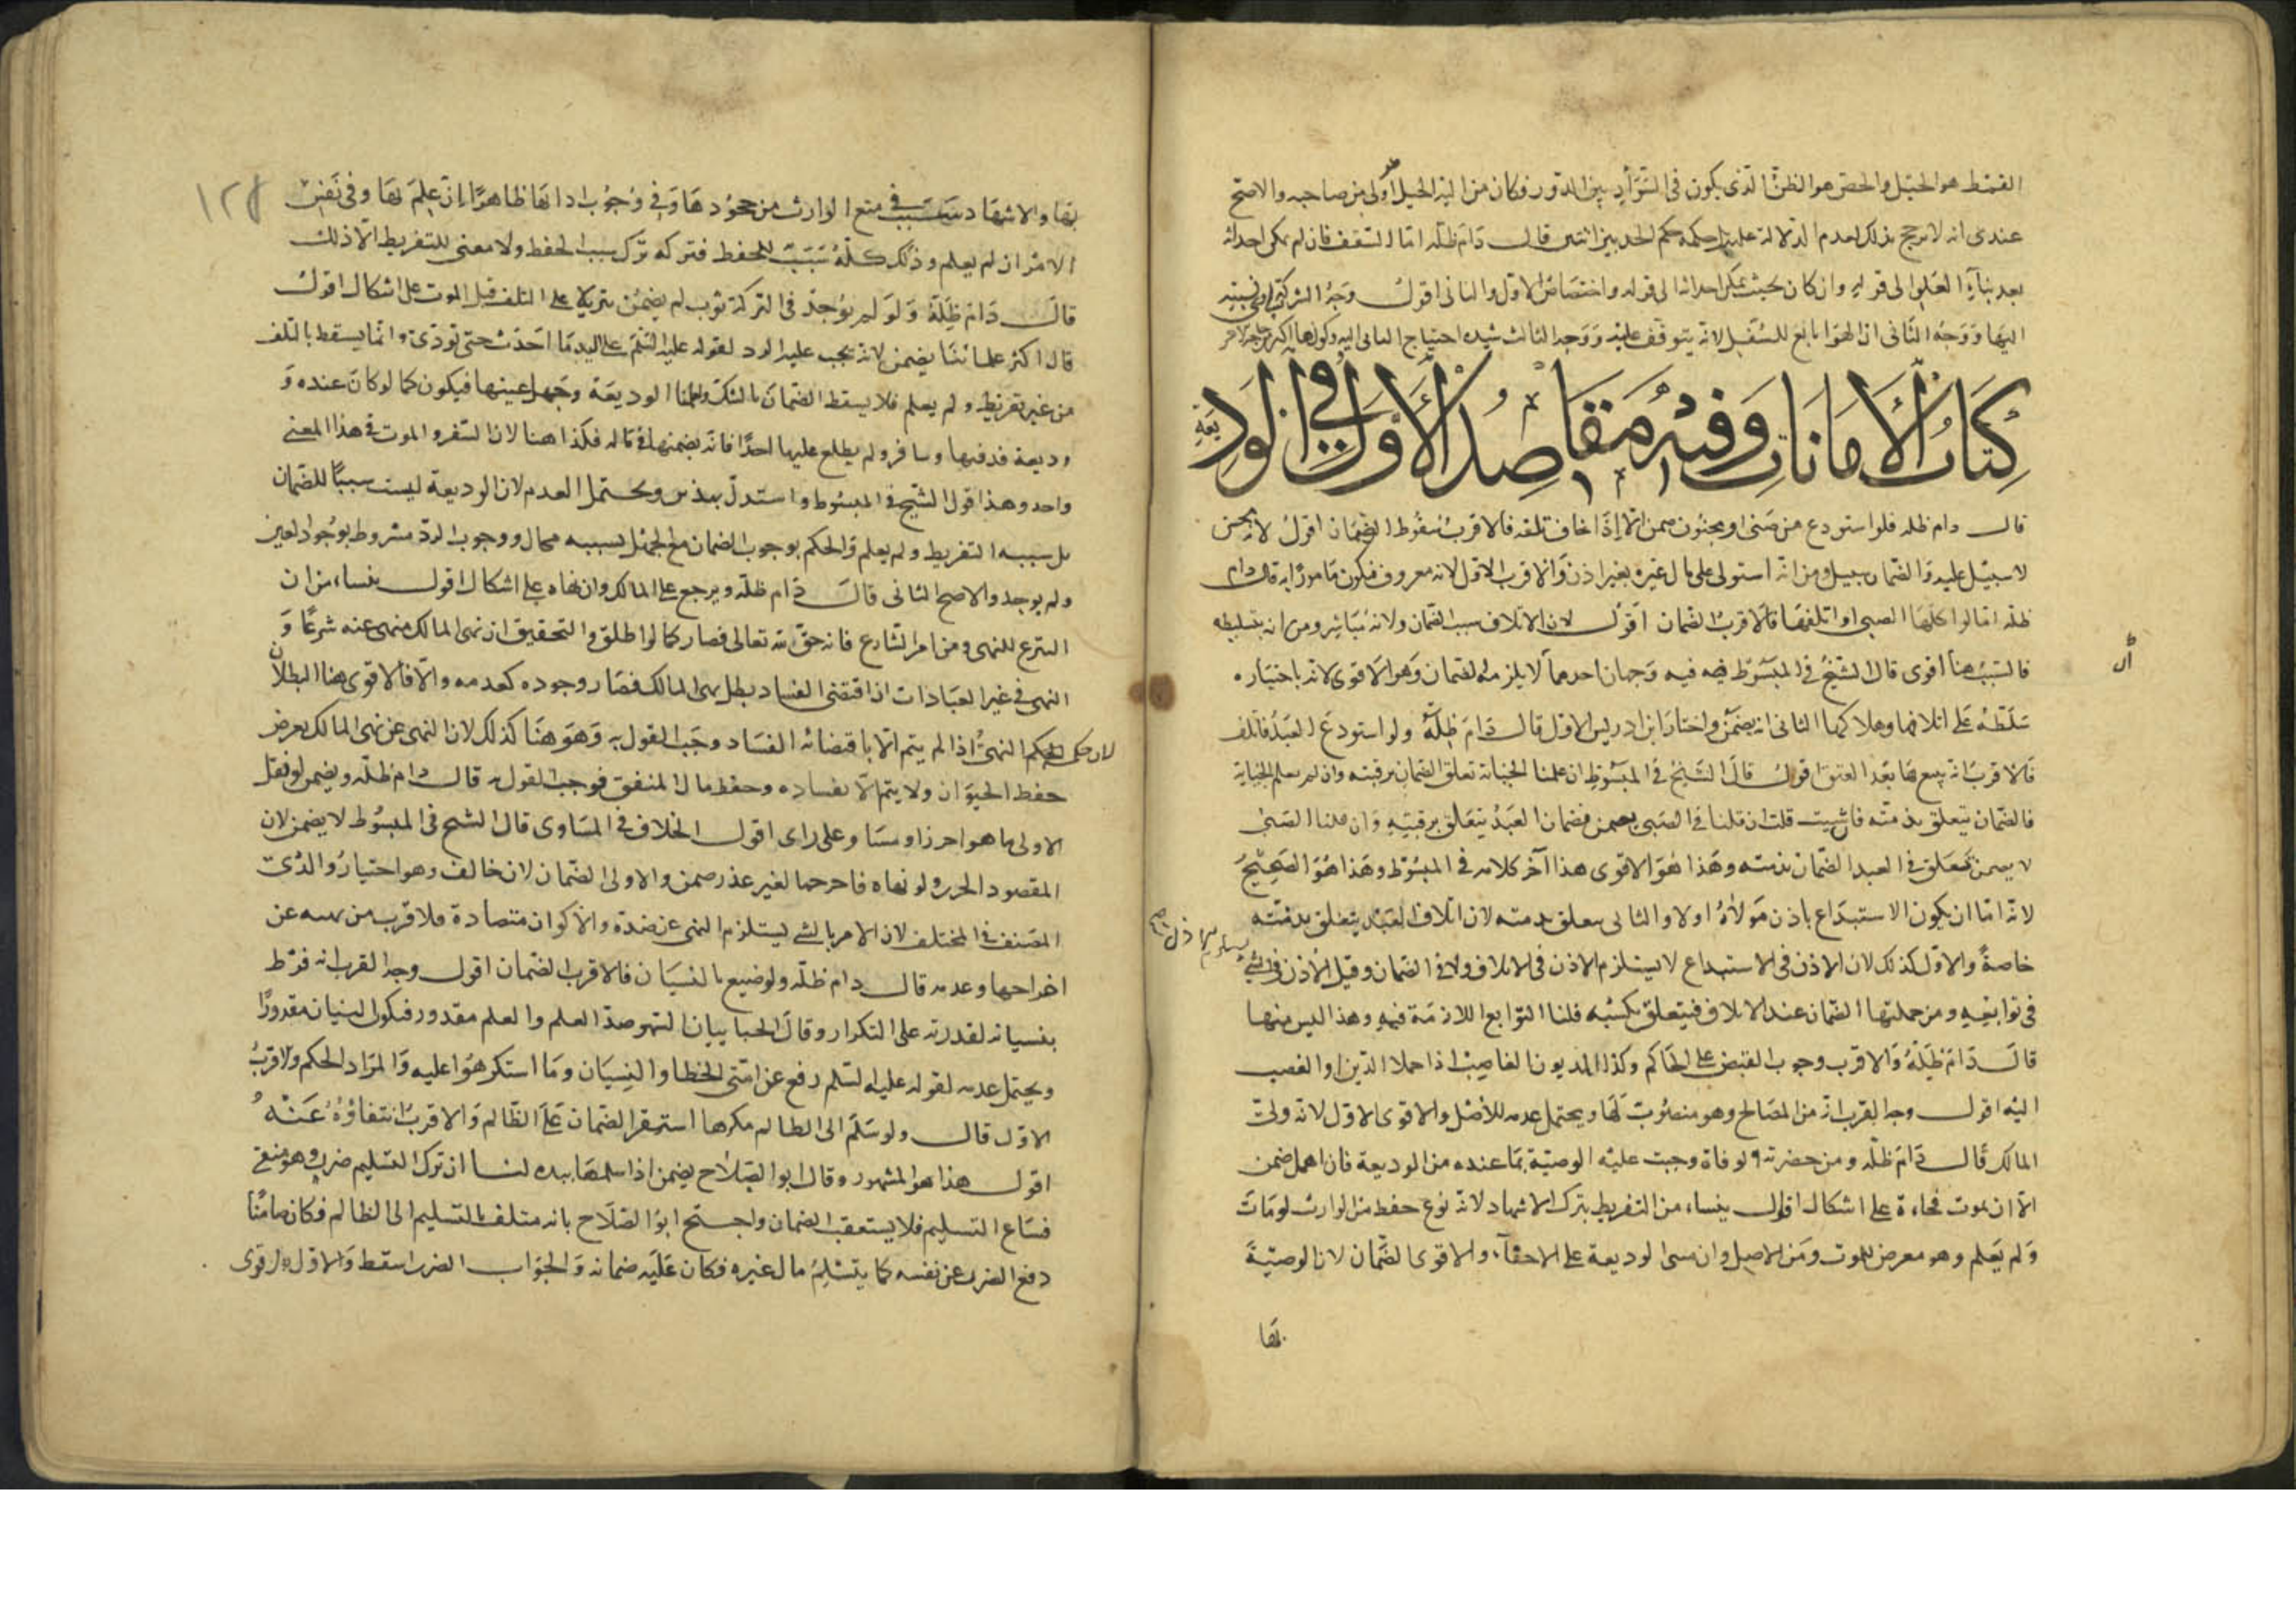 القمط هو الحبل والخص هو الظن الذى يكون فى السواد بين الدور فكان من اليه الحبل اولى من صاحبه والاصح
عندى انه لا ترجيح بذلك لعدم الدلالة عليه حكمه حكم الحد بين اثنين قال دام ظله اما السقف فان لم يكن احداثه
بعد بناء العلو الى قوله وان كان بحيث يمكن احداثه الى قوله واختصاص الاول والثانى اقول وجه الشركة
اليها ووجه الثانى ان الهوا تابع للسفل لانه يتوقف عليه ووجه الثالث شدة احتياج الثانى اليه
كتاب الامانات وفيه مقاصد الاول فى الوديعة
قال دام ظله فلو استودع من صبى او مجنون ضمن الا اذا خاف تلفه فالاقرب سقوط الضمان اقول لانه محسن
لا سبيل عليه والضمان سبيل ومن انه استولى على مال غيره بغير اذن والاقرب الاول لانه معروف فيكون مامورا به قال دام
ظله اما لو اكلها الصبى او اتلفها فالاقرب الضمان اقول لان الاتلاف سبب الضمان ولانه مباشر ومن انه بتسليطه
فالسبب هنا اقوى قال الشيخ فى المبسوط فيه وجهان احدهما لا يلزمه الضمان وهو الاقوى لانه باختياره
سلطه على اتلافها وهلاكها الثانى انه يضمن واختار ابن ادريس الاول قال دام ظله ولو استودع العبد فاتلف
فالاقرب انه يتبع بها بعد العتق اقول قال الشيخ فى المبسوط ان علمنا الجناية تعلق الضمان برقبته وان لم نعلم الجناية
فالضمان يتعلق بذمته فان شيت قلت ان قلنا فى الصبى يضمن فضمان العبد يتعلق برقبته وان قلنا الصبى
لا يضمن تعلق فى العبد الضمان بذمته وهذا هو الاقوى هذا آخر كلامه فى المبسوط وهذا هو الصحيح
لانه اما ان يكون الاستيداع باذن مولاه اولا والثانى يتعلق بذمته لان اتلاف العبد يتعلق بذمته
خاصة والاول كذلك لان الاذن فى الاستيداع لا يستلزم الاذن فى الاتلاف ولا فى الضمان وقيل الاذن فى الشئ
فى توابعه ومن جملتها الضمان عند الاتلاف فيتعلق بكسبه قلنا التوابع اللازمة فيه وهذا ليس منها
قال دام ظله والاقرب وجوب القبض على الحاكم وكذا المديون الغاصب اذا حملا الدين او الغصب
اليه اقول وجه القرب انه من المصالح وهو منصوب لها ويحتمل عدمه للاصل والاقوى الاول لانه ولى
المالك قال دام ظله ومن حضرته الوفاة وجبت عليه الوصية بما عنده من الوديعة فان اهمل ضمن
الا ان يموت فجاءة على اشكال اقول ينشاء من التفريط بترك الاشهاد لانه نوع حفظ من الوارث لو مات
ولم يعلم وهو معرض للموت ومن الاصل وان مبنى الوديعة على الاخفاء والاقوى الضمان لان الوصية
بها
١٢٨
بها والاشهاد سبب فى منع الوارث من جحودها وفى وجوب ادائها ظاهرا ان علم بها وفى نفس
الامر ان لم يعلم وذلك كله سبب للحفظ فتركه ترك سبب الحفظ ولا معنى للتفريط الا ذلك
قال دام ظله ولو لم يوجد فى التركة ثوب لم يضمن تنزيلا على التلف قبل الموت على اشكال اقول
قال اكثر علمائنا يضمن لانه يجب عليه الرد لقوله عليه السلم على اليد ما اخذت حتى تودى وانما يسقط بالتلف
من غير تفريط ولم يعلم فلا يسقط الضمان بالشك ولعلمنا الوديعة وجهل عينها فيكون كما لو كان عنده و
وديعة فدفنها وسافر ولم يطلع عليها احدا فانه يضمنها فى ماله فكذا هنا لان السفر والموت فى هذا المعنى
واحد وهذا قول الشيخ فى المبسوط واستدل بهذين ويحتمل العدم لان الوديعة ليست سببا للضمان
بل سببه التفريط ولم يعلم والحكم بوجوب الضمان مع الجهل بسببه محال ووجوب الرد مشروط بوجود العين
ولم يوجد والاصح الثانى قال دام ظله ويرجع على المالك وان نهاه على اشكال اقول ينشاء من ان
التبرع للنهى ومن امر الشارع فانه حق لله تعالى فصار كما لو اطلق والتحقيق ان نهى المالك منهى عنه شرعا و
النهى فى غير العبادات ان اقتضى الفساد بطل نهى المالك فصار وجوده كعدمه والا فالاقوى هنا البطلان
لان حكم النهى اذا لم يتم الا باقتضائه الفساد وجب القول به وهو هنا كذلك لان النهى عن نهى المالك لغرض
حفظ الحيوان ولا يتم الا بفساده وحفظ مال المنفق فوجب القول به قال دام ظله ويضمن لو نقل
الاولى ما هو احرز او مساو على راى اقول الخلاف فى المساوى قال الشيخ فى المبسوط لا يضمن لان
المقصود الحرز ولو نهاه فاخرجها لغير عذر ضمن والاولى الضمان لانه خالف وهو اختيار والدى
المصنف فى المختلف لان الامر بالشئ يستلزم النهى عن ضده والاكوان متضادة فلا فرق بين نهيه عن
اخراجها وعدمه قال دام ظله ولو ضيع بالنسيان فالاقرب الضمان اقول وجه القرب انه فرط
بنسيانه لقدرته على التكرار وقال الجبائيان السهو ضد العلم والعلم مقدور فيكون النسيان مقدورا
ويحتمل عدمه لقوله عليه السلم رفع عن امتى الخطا والنسيان وما استكرهوا عليه والمراد الحكم والاقرب
الاول قال ولو سلم الى الظالم مكرها استقر الضمان على الظالم والاقرب انتفاؤه عنه
اقول هذا هو المشهور وقال ابو الصلاح يضمن اذا سلمها بيده لنا ان ترك التسليم ضرر وهو منفى
فساغ التسليم فلا يستعقب الضمان واحتج ابو الصلاح بانه متلف بالتسليم الى الظالم فكان ضامنا
دفع الضرر عن نفسه كما بتسليم مال غيره فكان عليه ضمانه والجواب الضرر اسقط والاول اقوى